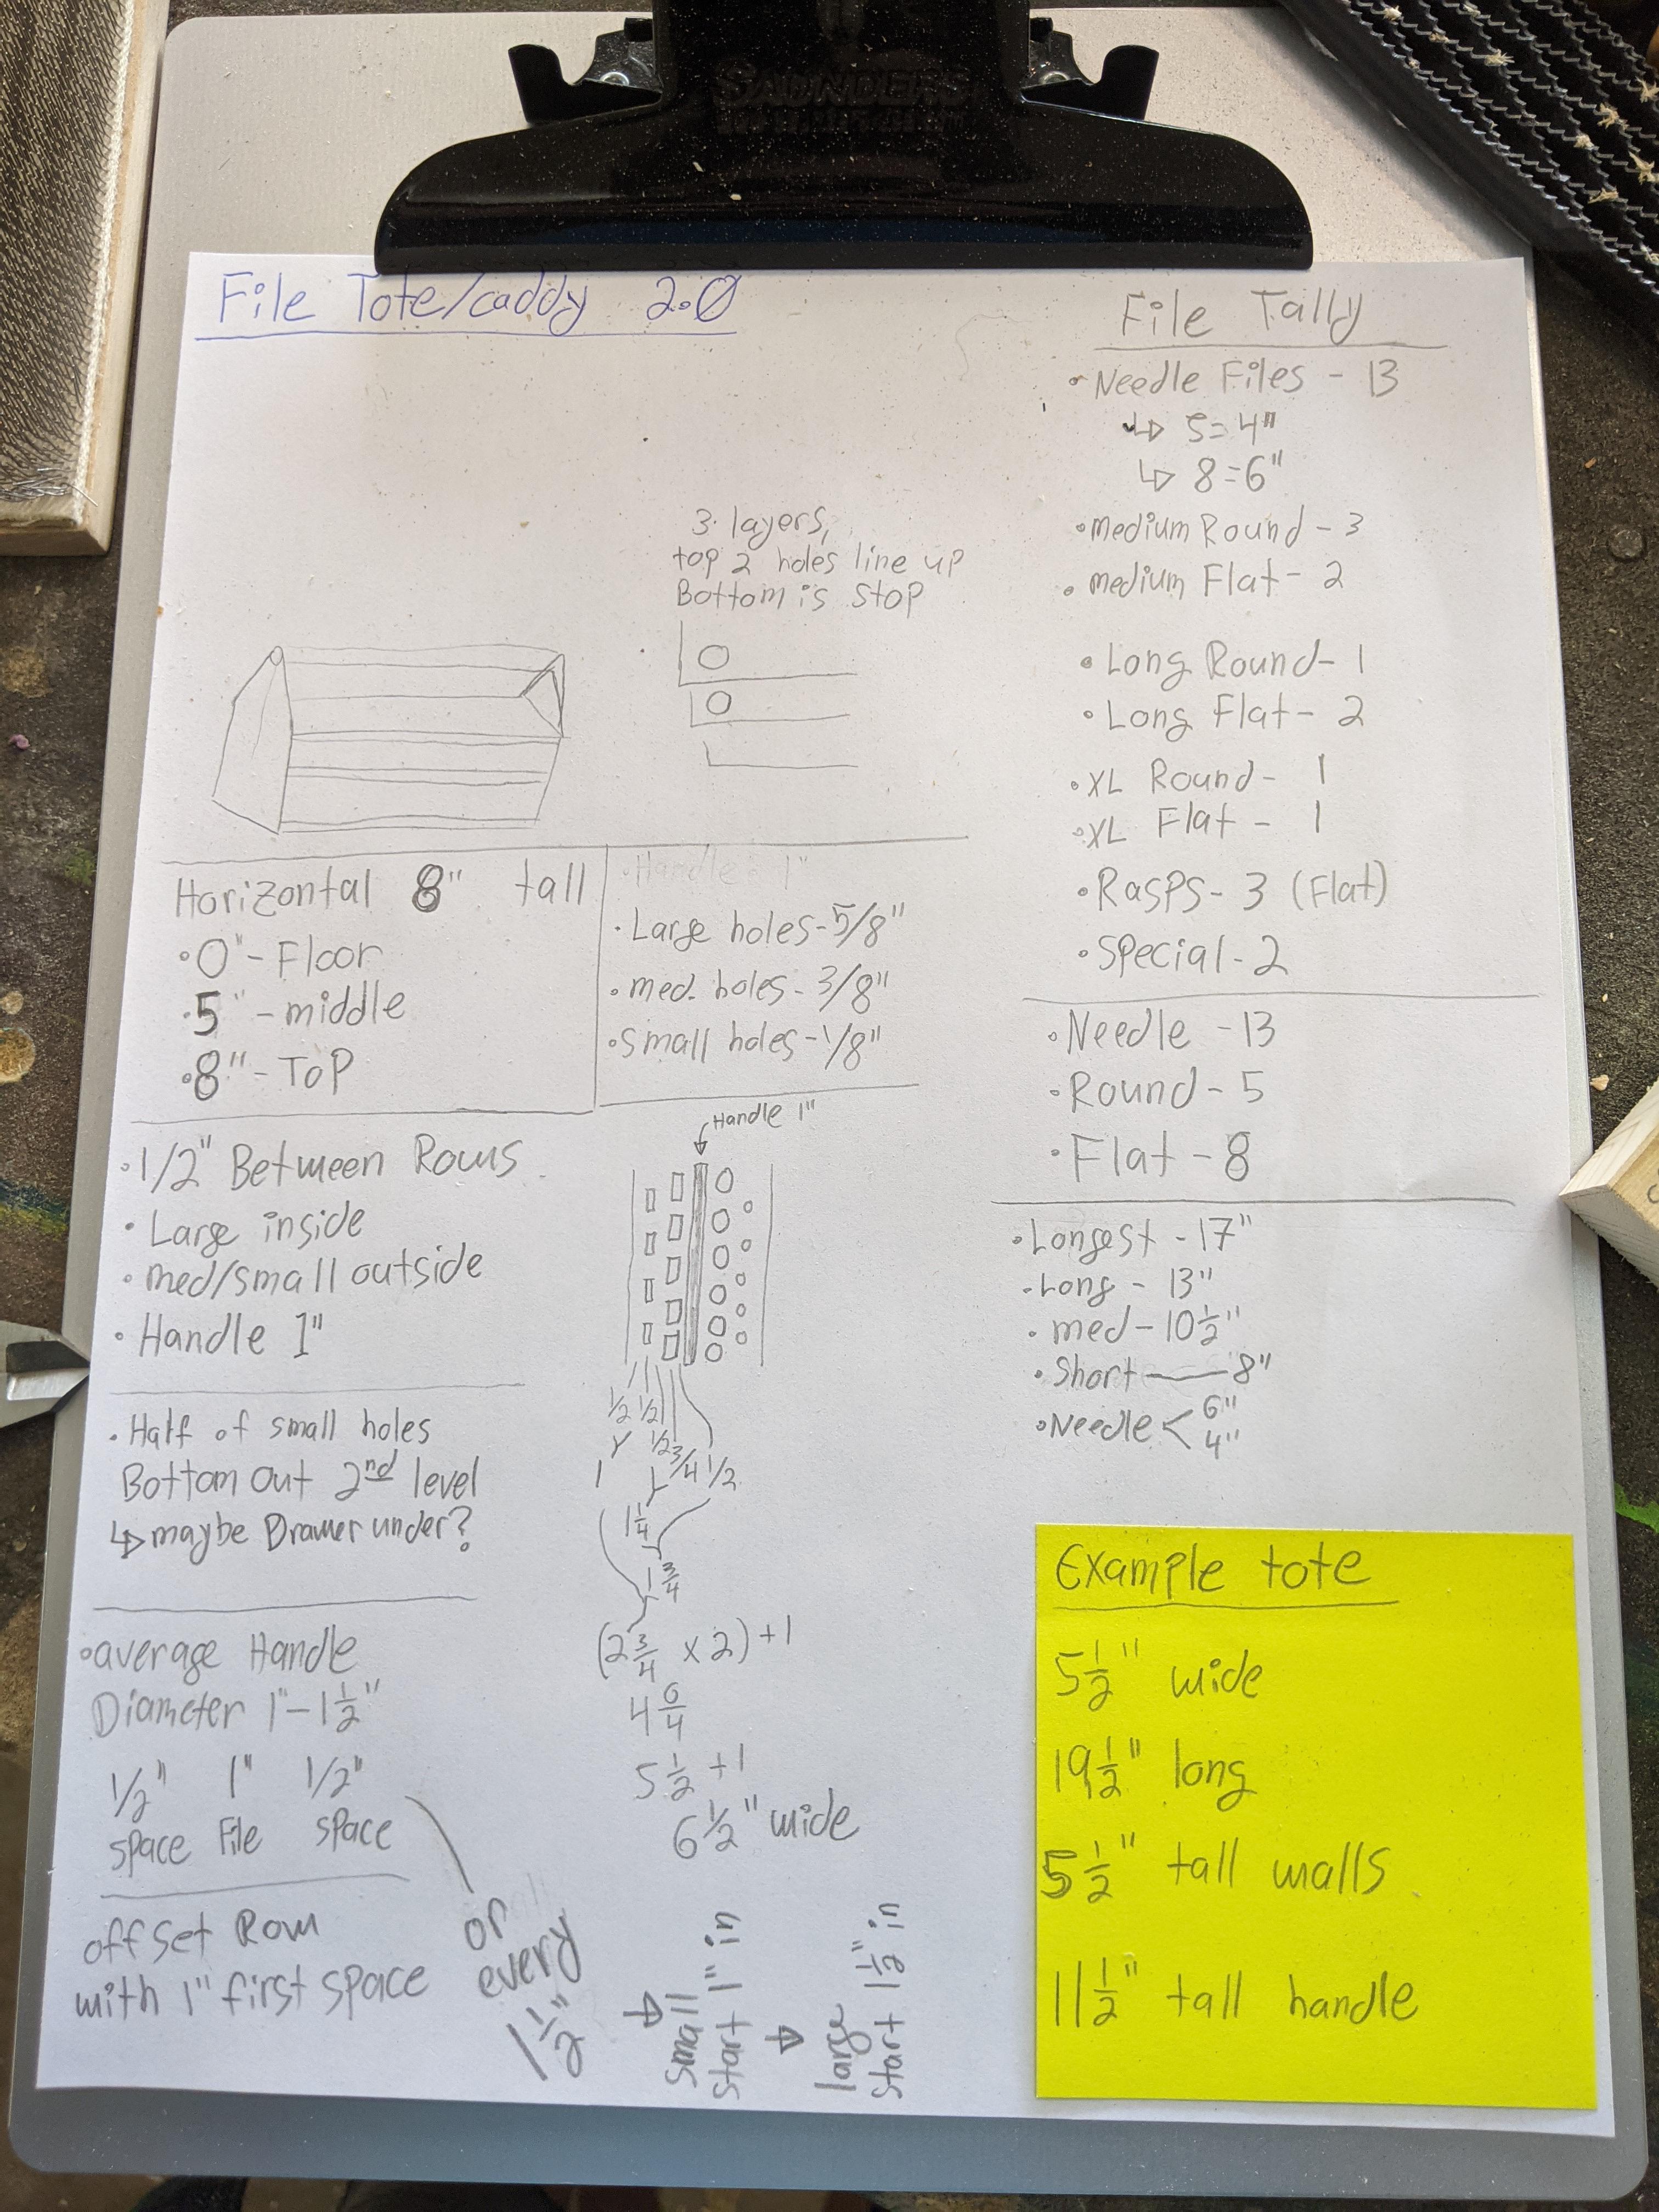 SAUNDERS
File Tote/caddy 2.0
3 layers,
top 2 holes line up
Bottom is stop
Horizontal 8" tall
•0"-Floor
•5"-middle
•8"-Top
•Handle - 1"
•Large holes-5/8"
•med. holes-3/8"
•small holes-1/8"
•1/2" Between Rows
•Large inside
•med/small outside
•Handle 1"
•Half of small holes
Bottom out 2nd level
↳maybe Drawer under?
•average Handle
Diameter 1"-1 1/2"
1/2" 1" 1/2"
space File space
or
every
1 1/2"
offset Row
with 1" first space
Handle 1"
1/2 1/2
1/2 3/4 1/2
1
1 1/4
1 3/4
(2 3/4 x 2)+1
4 6/4
5 1/2 +1
6 1/2" wide
small
start 1" in
large
start 1 1/2" in
File Tally
•Needle Files - 13
↳ 5=4"
↳ 8=6"
•medium Round - 3
•medium Flat - 2
•Long Round - 1
•Long Flat - 2
•XL Round - 1
•XL Flat - 1
•Rasps - 3 (Flat)
•Special - 2
•Needle - 13
•Round - 5
•Flat - 8
•Longest - 17"
•Long - 13"
•med - 10 1/2"
•Short — 8"
•Needle < 6"
4"
Example tote
5 1/2" wide
19 1/2" long
5 1/2" tall walls
11 1/2" tall handle